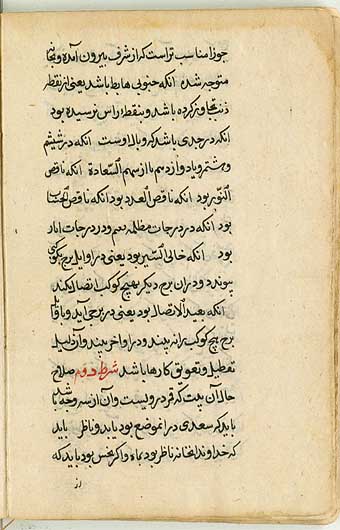 جوزا مناسب تر است که از شرف بیرون آمده و بجانب
متوجه شده آنکه جنوبی هابط باشد یعنی از نقطه
ذنب تجاوز کرده باشد و بنقطه راس نرسیده بود
آنکه در جدی باشد که وبال اوست آنکه در ششم
و هشتم و یا دوازدهم باز سهم السعادة آنکه ناقص
النور بود آنکه ناقص العدد بود آنکه ناقص الحساب
بود آنکه در درجات مظلمه بود و در درجات ابار
بود آنکه خالی السیر بود یعنی در اوایل برج بکوکبی
پیوندد و در ان برج دیگر بهیچ کوکب اتصال نکند
آنکه بعید الاتصال بود یعنی در برجی آید و باوایل
برج هیچ کوکب را نه پیوندد و در اواخر پیوندد و آن دلیل
تعطیل و تعویق کارها باشد شرط دوم صلاح
حال آن بیت که قمر درویست و آن از سه وجه باشد
باید که سعدی در ان موضع بود یا بدو ناظر باید
که خداوند آنخانه ناظر بود بماه و اگر نحس بود باید که
از